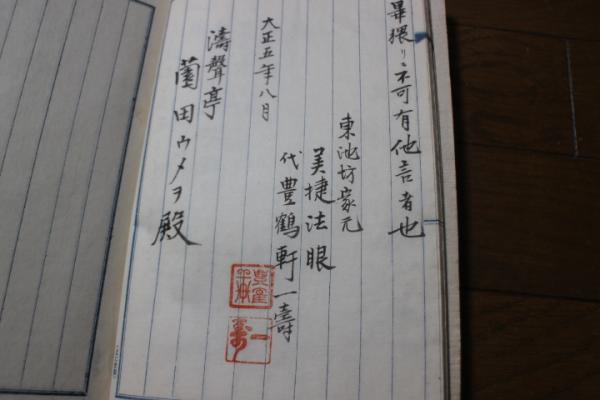 畢猥リニ不可有他言者也
東池坊家元
美捷法眼
代豊鶴軒一壽
大正五年八月
濤聲亭
薗田ウメヲ殿